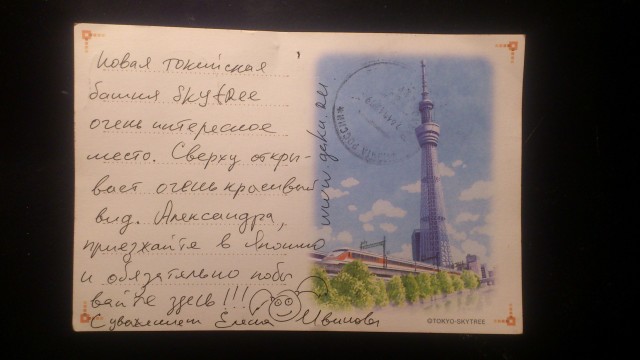 Новая токийская
башня Skytree
очень интересное
место. Сверху откры-
вает очень красивый
вид. Александра,
приезжайте в Японию
и обязательно побы
вайте здесь!!!
С уважением Елена
www.gaku.ru
ПОЧТА РОССИИ
©TOKYO-SKYTREE